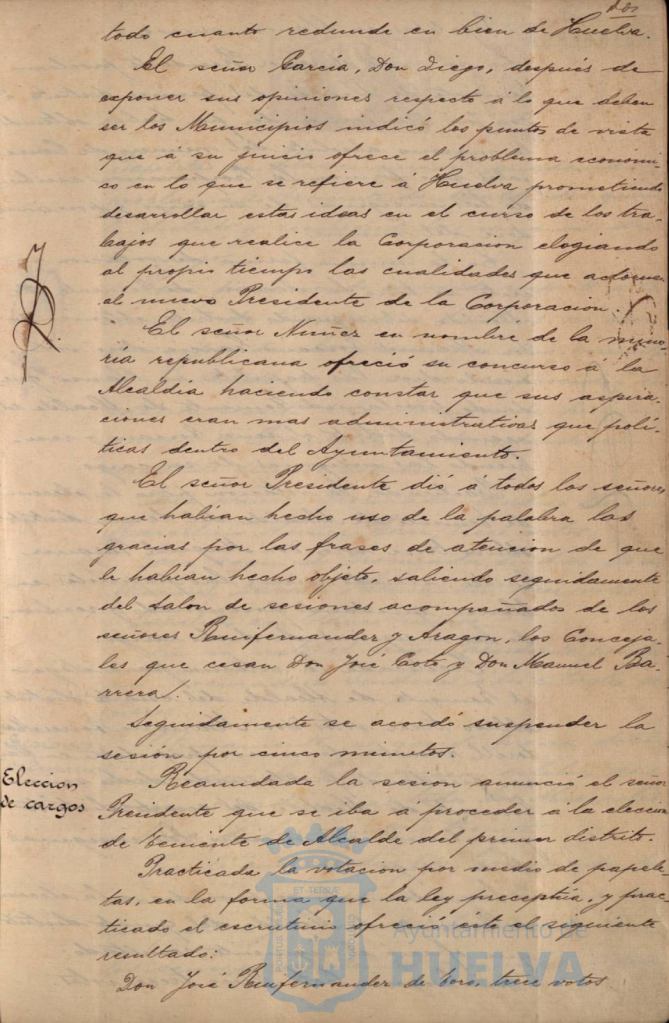 Dos
todo cuanto redunde en bien de Huelva.
El señor García, Don Diego, después de
exponer sus opiniones respecto á lo que deben
ser los Municipios indicó los puntos de vista
que á su juicio ofrece el problema económi-
co en lo que se refiere á Huelva prometiendo
desarrollar estas ideas en el curso de los tra-
bajos que realice la Corporacion elogiando
al propio tiempo las cualidades que adornan
al nuevo Presidente de la Corporacion.
El señor Nuñez en nombre de la mino-
ría republicana ofreció su concurso á la
Alcaldia haciendo constar que sus aspira-
ciones eran mas administrativas que polí-
ticas dentro del Ayuntamiento.
El señor Presidente dió á todos los señores
que habían hecho uso de la palabra las
gracias por las frases de atencion de que
le habían hecho objeto, saliendo seguidamente
del salon de sesiones acompañados de los
señores Ruifernandez y Aragon, los Conceja-
les que cesan Don José Coto y Don Manuel Ba-
rrera.
Seguidamente se acordó suspender la
sesión por cinco minutos.
Eleccion
de cargos
Reanudada la sesion anunció el señor
Presidente que se iba á proceder á la eleccion
de Teniente de Alcalde del primer distrito.
Practicada la votacion por medio de papele-
tas, en la forma que la ley preceptúa, y prac-
ticado el escrutinio ofreció éste el siguiente
resultado:
Don José Ruifernandez de Toro, trece votos
Ayuntamiento de
HUELVA